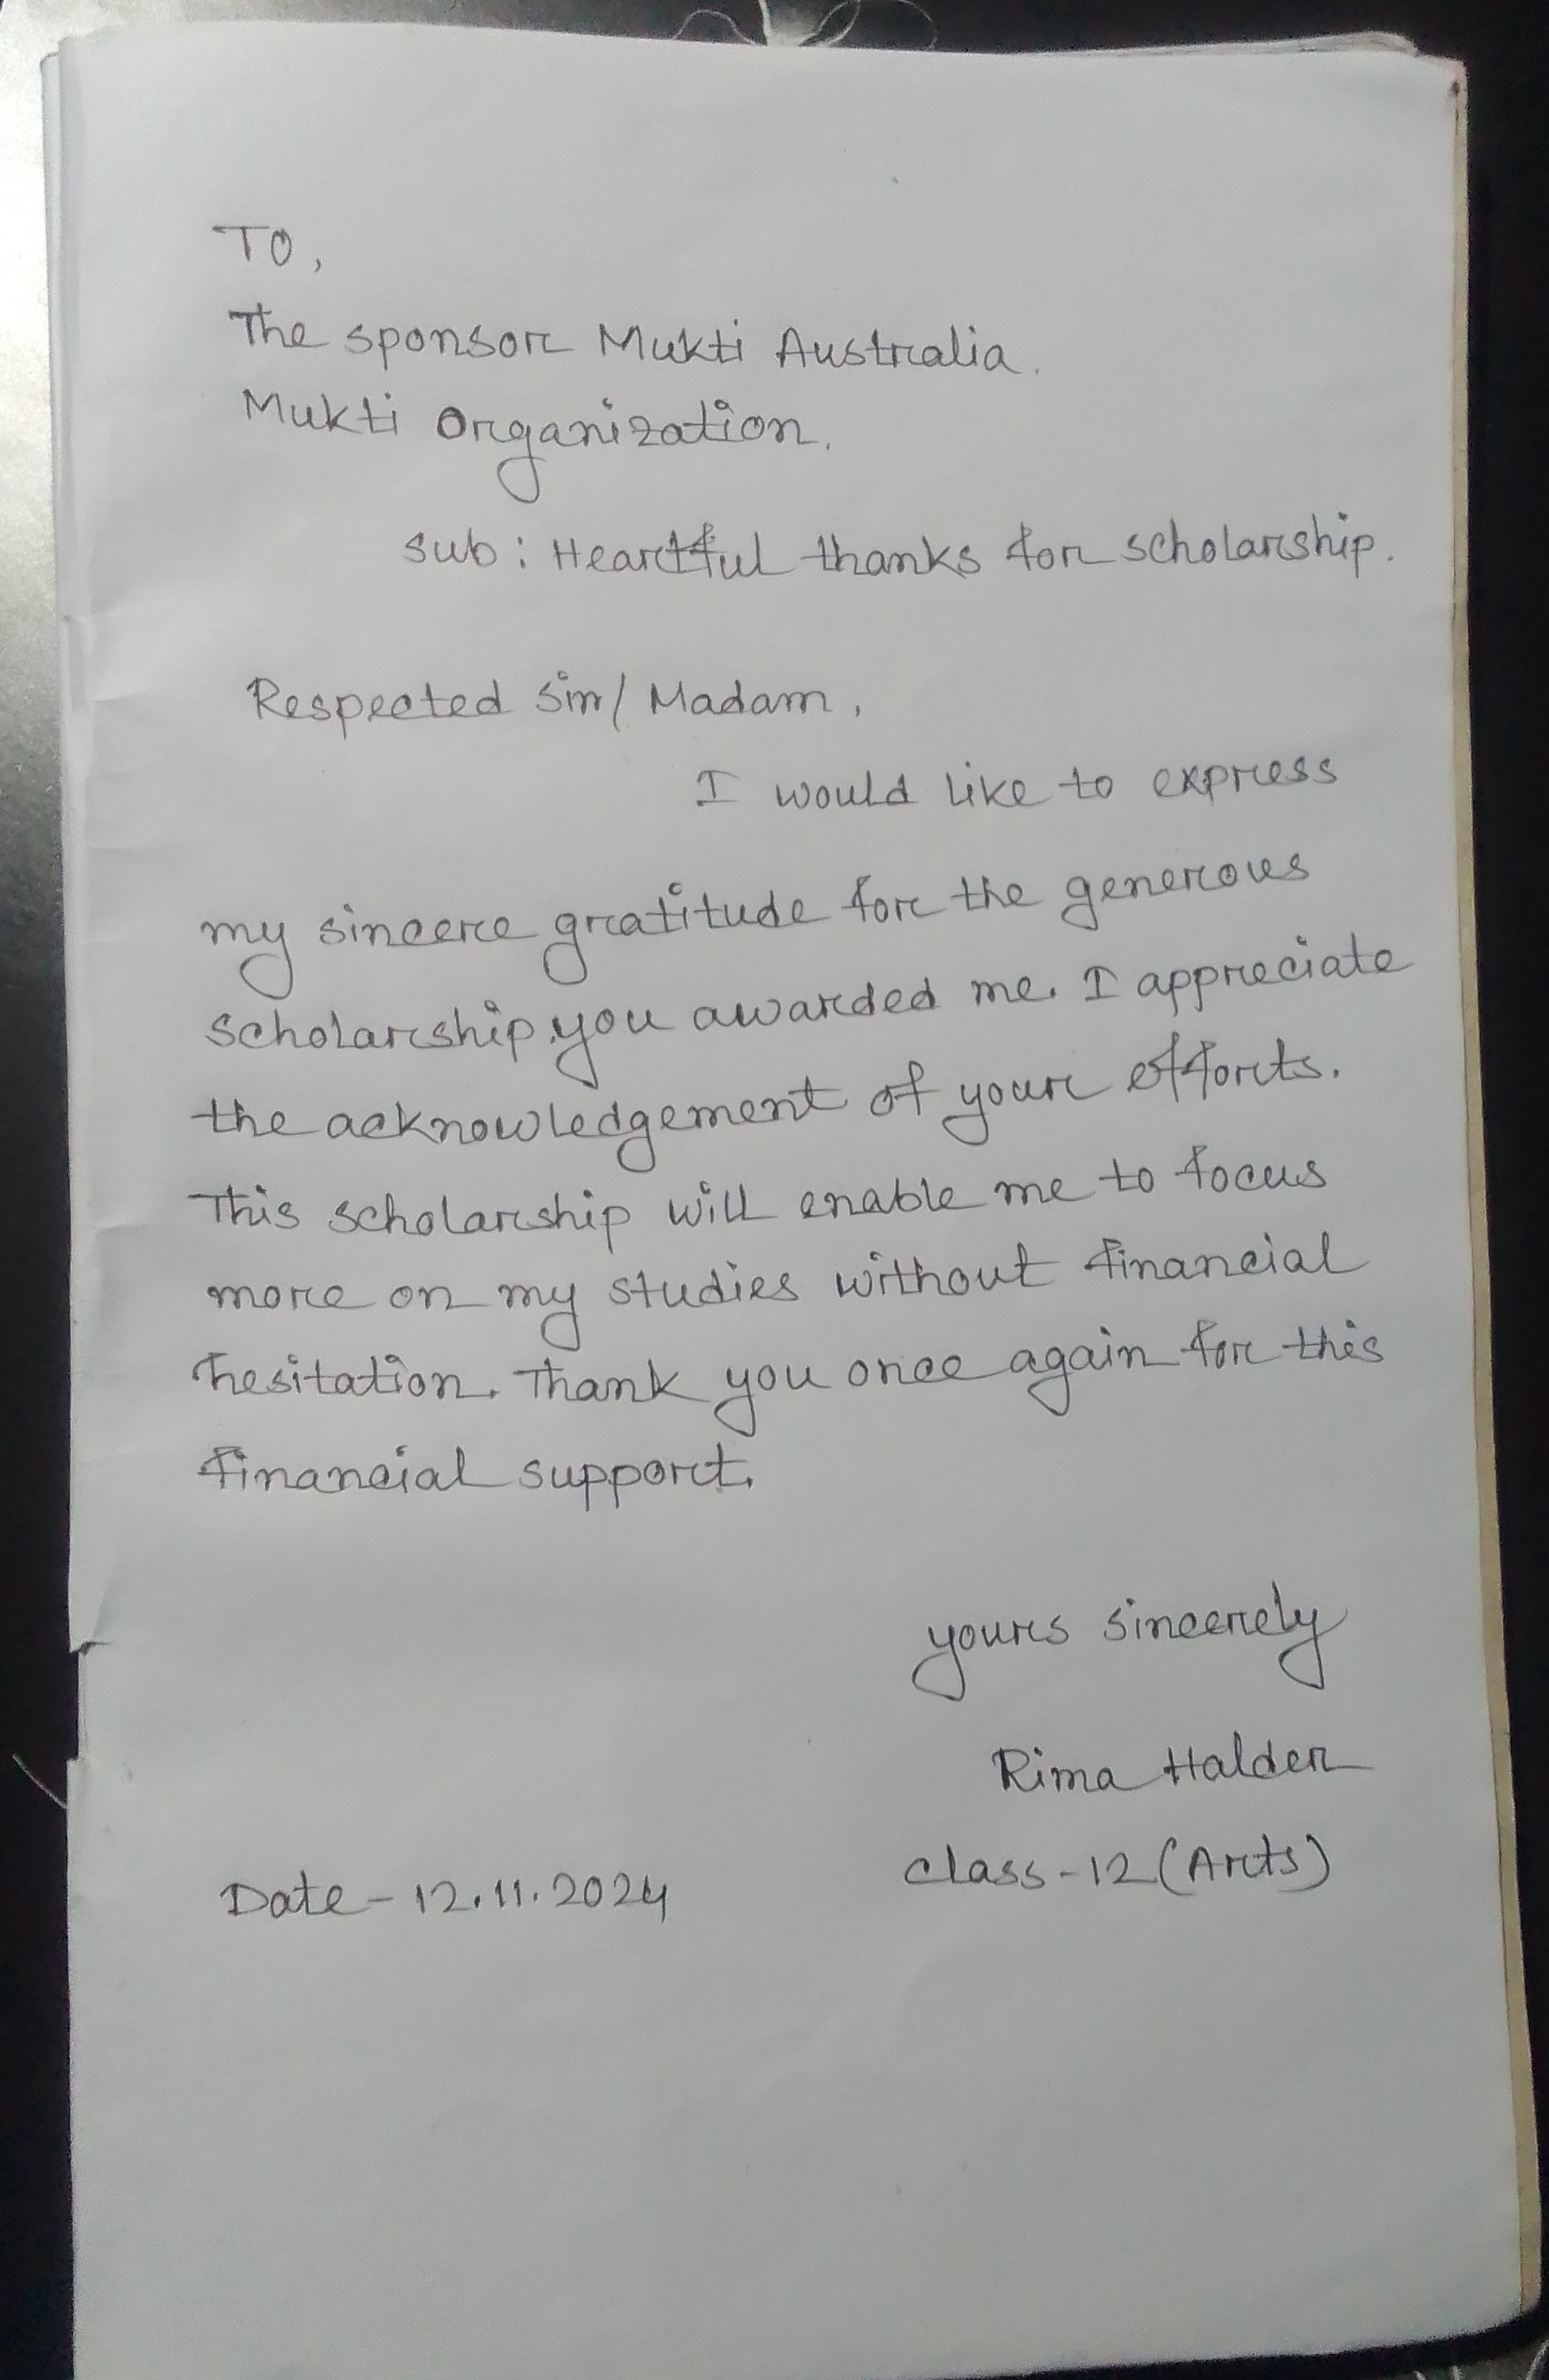 TO,
The sponsor Mukti Australia.
Mukti Organization.
Sub : Heartful thanks for scholarship.
Respected Sir/ Madam,
I would like to express
my sincere gratitude for the generous
scholarship, you awarded me. I appreciate
the acknowledgement of your efforts.
This scholarship will enable me to focus
more on my studies without financial
hesitation. Thank you once again for this
financial support.
yours sincerely
Rima Halder
Date - 12.11.2024 class - 12 (Arts)